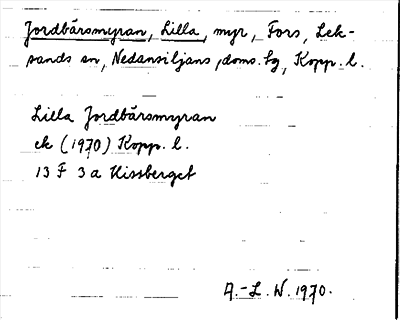 Jordbärsmyran, Lilla, myr, Fors, Lek-
sands sn, Nedansiljans doms.sg, Kopp. l.
Lilla Jordbärsmyran
ek (1970) Kopp. l.
13 F 3 a Hissberget
A.-L. W. 1970.